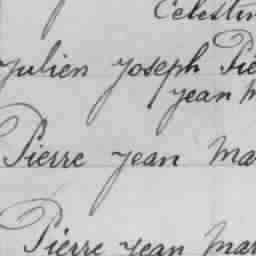 Celestin
Julien Joseph Pie
Jean M
Pierre Jean Mar
Pierre Jean Mar